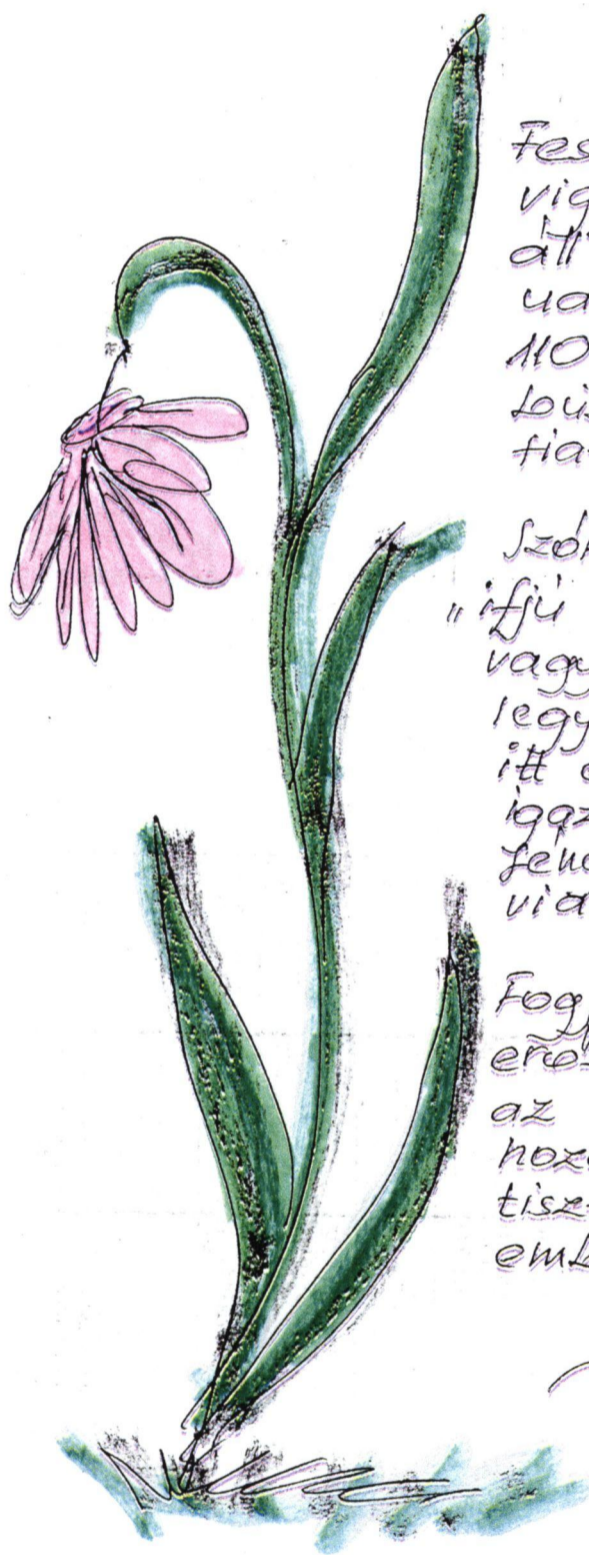 Fes
vig
áll
ua
110
Lois
fia

Szó
„ifjú
vagy
legy
itt
igaz
fén
via

Fog
erő
az
hoz
tisz
eml